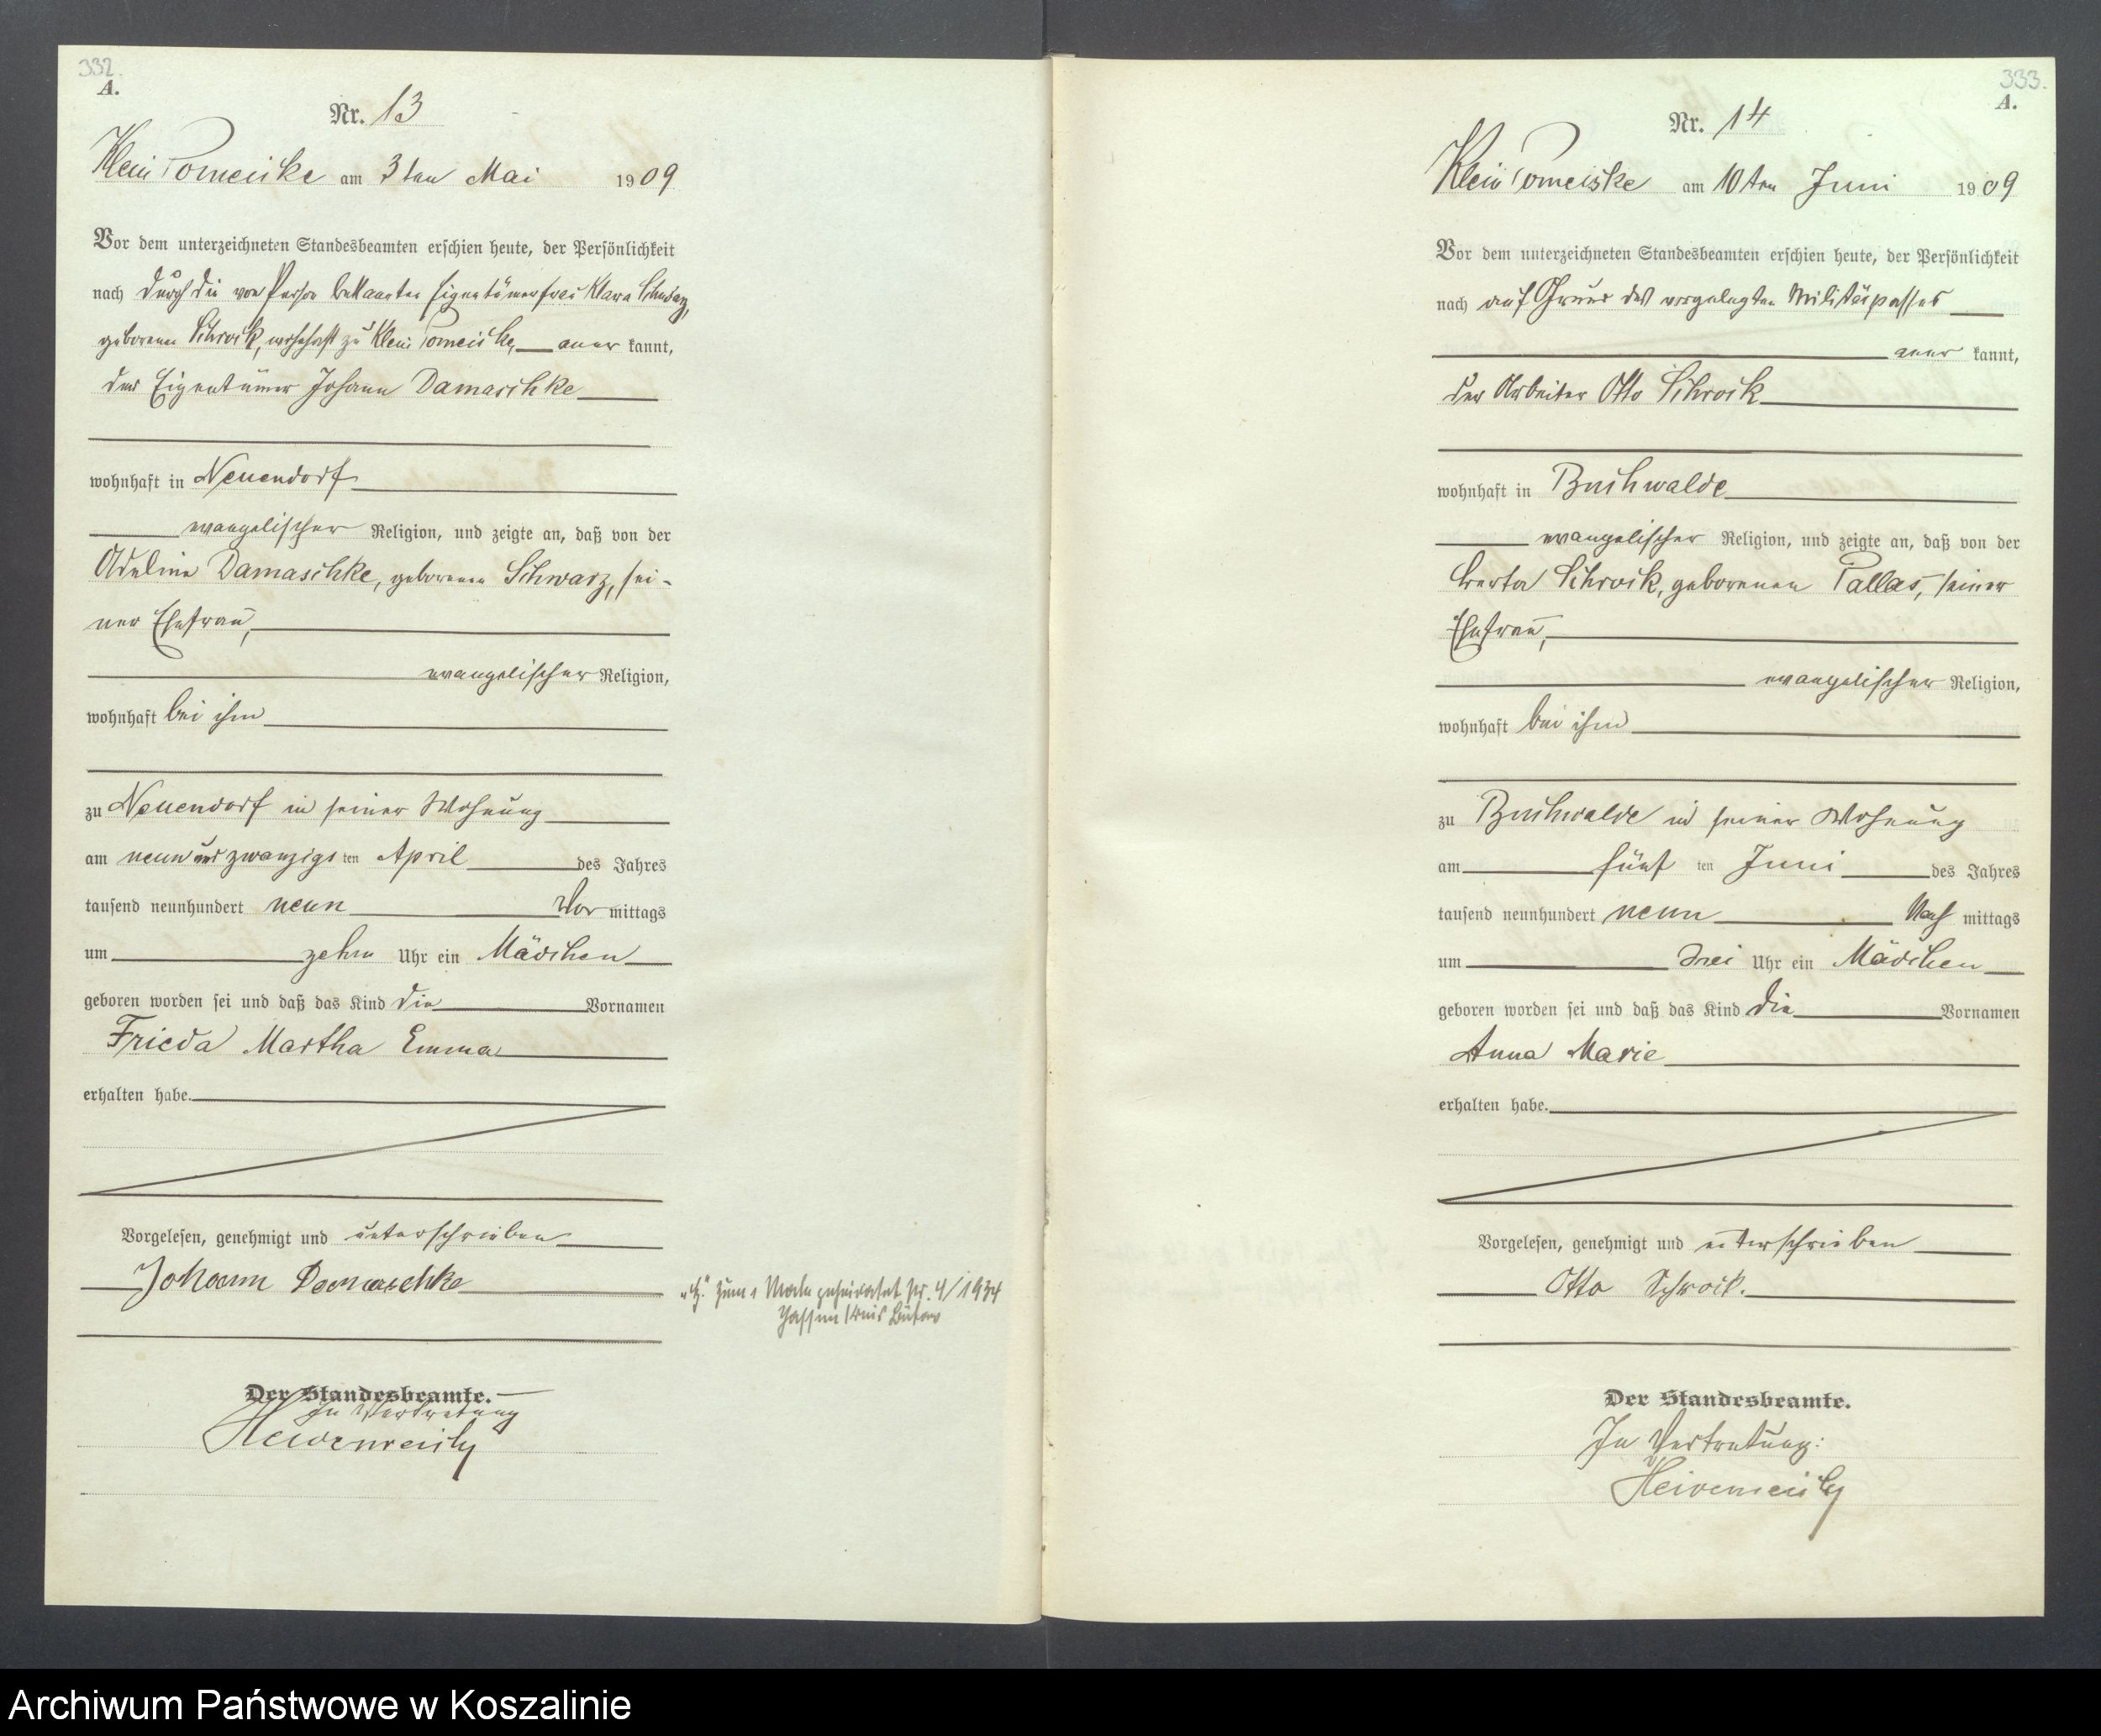 332.
A.
Nr. 13
Klein Pomeiske am 3ten Mai 1909
Vor dem unterzeichneten Standesbeamten erschien heute, der Persönlichkeit
nach durch die von Person bekannte Eigentümerfrau Klara
geborene Schrock, wohnhaft zu Klein Pomeiske, aner kannt,
der Eigentümer Johann Damaschke
wohnhaft in Neuendorf
evangelischer Religion, und zeigte an, daß von der
Adeline Damaschke, geborenen Schwarz, sei-
ner Ehefrau,
evangelischer Religion,
wohnhaft bei ihm
zu Neuendorf in seiner Wohnung
am neunundzwanzigs ten April des Jahres
tausend neunhundert neun Vor mittags
um zehn Uhr ein Mädchen
geboren worden sei und daß das Kind die Vornamen
Frieda Martha Emma
erhalten habe.
Vorgelesen, genehmigt und unterschrieben
Johann Damaschke
zum 1 Male geheiratet Nr. 4/1934
Jassen Kreis Bütow
Der Standesbeamte.
In Vertretung
333.
A.
Nr. 14
Klein Pomeiske am 10ten Juni 1909
Vor dem unterzeichneten Standesbeamten erschien heute, der Persönlichkeit
nach auf Grund des vorgelegten Militärpasses
aner kannt,
der Arbeiter Otto Schrock
wohnhaft in Buchwalde
evangelischer Religion, und zeigte an, daß von der
Berta Schrock, geborenen Pallas, seiner
Ehefrau,
evangelischer Religion,
wohnhaft bei ihm
zu Buchwalde in seiner Wohnung
am fünf ten Juni des Jahres
tausend neunhundert neun Nach mittags
um drei Uhr ein Mädchen
geboren worden sei und daß das Kind die Vornamen
Anna Marie
erhalten habe.
Vorgelesen, genehmigt und unterschrieben
Otto Schrock.
Der Standesbeamte.
In Vertretung:
Archiwum Państwowe w Koszalinie